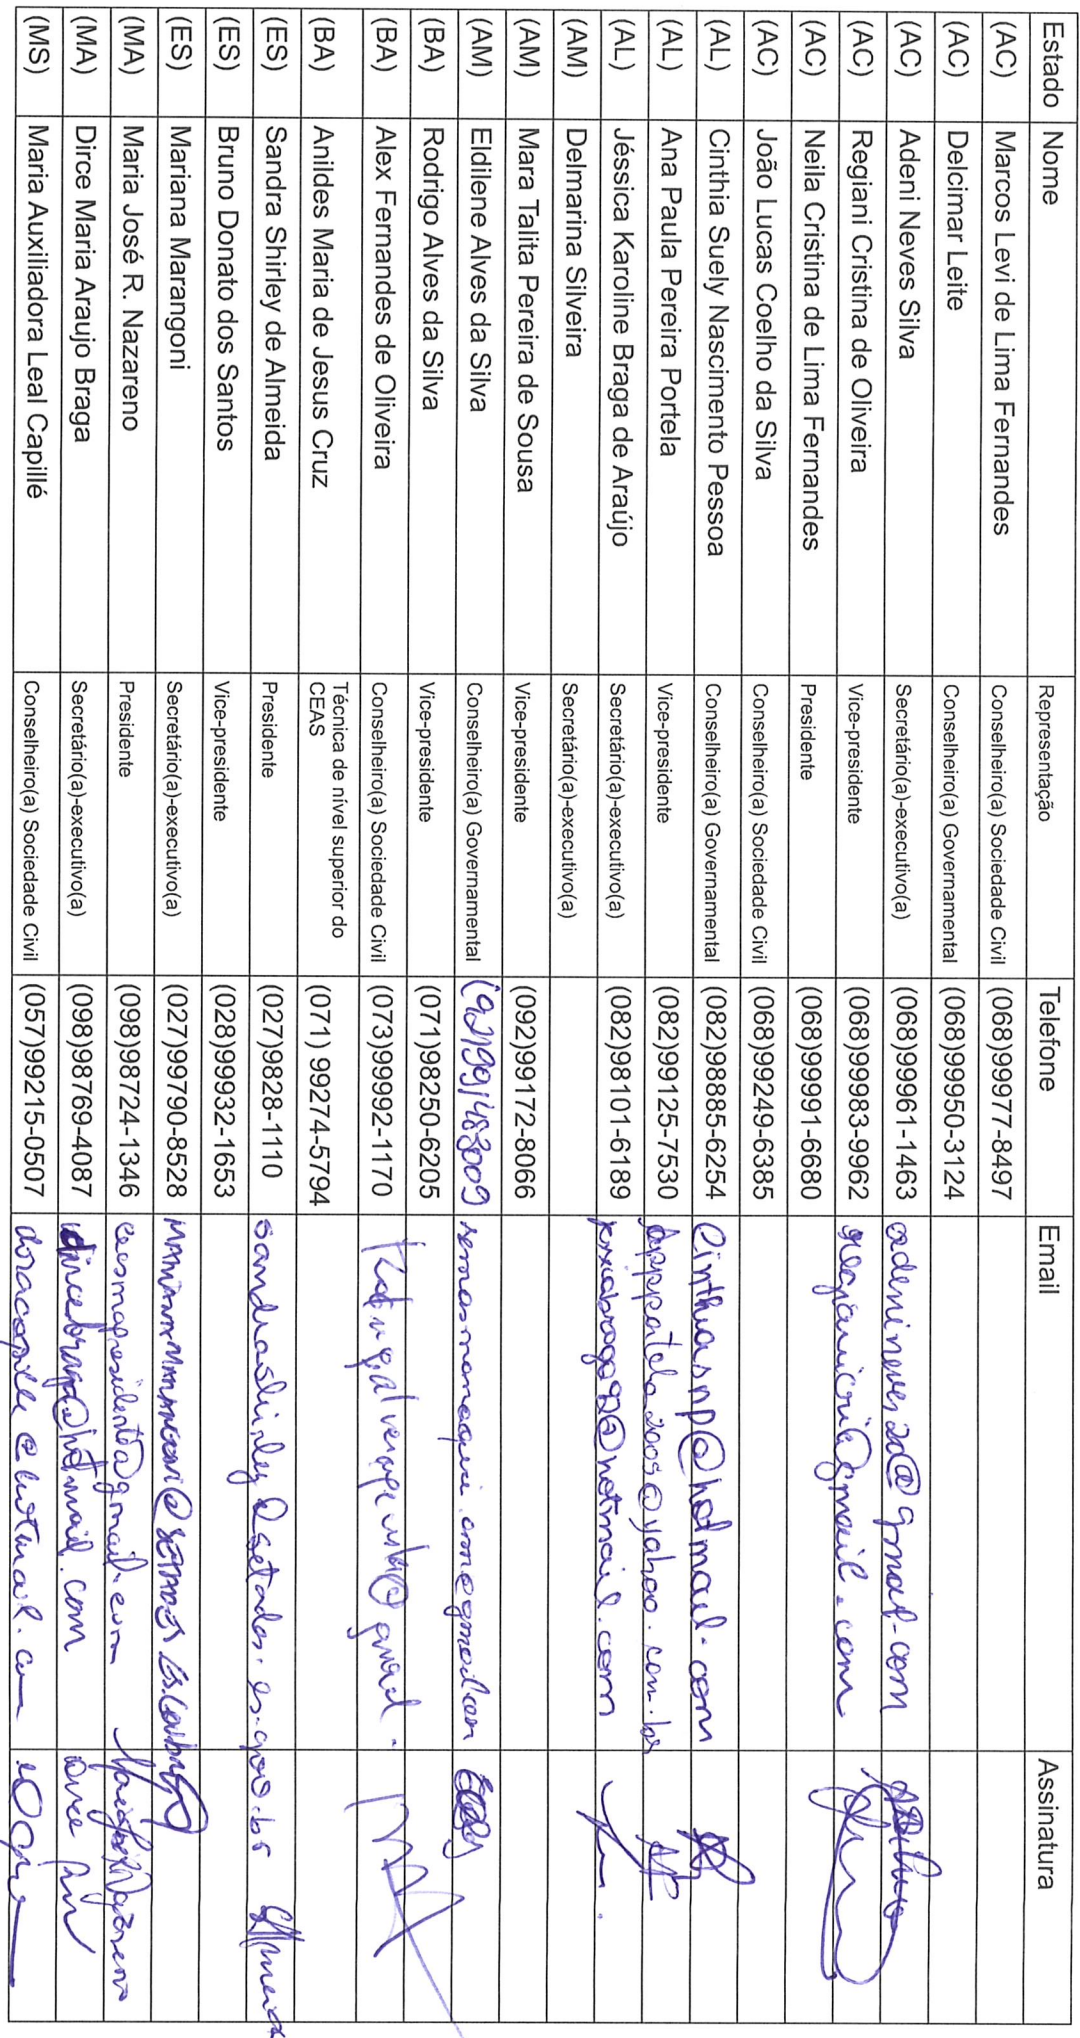 Estado Nome Representação Telefone Email Assinatura
(AC) Marcos Levi de Lima Fernandes Conselheiro(a) Sociedade Civil (068)99977-8497
(AC) Delcimar Leite Conselheiro(a) Governamental (068)99950-3124
(AC) Adeni Neves Silva Secretário(a)-executivo(a) (068)99961-1463 adenineves20@gmail.com
(AC) Regiani Cristina de Oliveira Vice-presidente (068)99983-9962 regianicris@gmail.com
(AC) Neila Cristina de Lima Fernandes Presidente (068)99991-6680
(AC) João Lucas Coelho da Silva Conselheiro(a) Sociedade Civil (068)99249-6385
(AL) Cinthia Suely Nascimento Pessoa Conselheiro(a) Governamental (082)98885-6254 Cinthiasnp@hotmail.com
(AL) Ana Paula Pereira Portela Vice-presidente (082)99125-7530 appportela2005@yahoo.com.br
(AL) Jéssica Karoline Braga de Araújo Secretário(a)-executivo(a) (082)98101-6189
(AM) Delmarina Silveira Secretário(a)-executivo(a)
(AM) Mara Talita Pereira de Sousa Vice-presidente (092)99172-8066
(AM) Eldilene Alves da Silva Conselheiro(a) Governamental (92)991483009
(BA) Rodrigo Alves da Silva Vice-presidente (071)98250-6205
(BA) Alex Fernandes de Oliveira Conselheiro(a) Sociedade Civil (073)99992-1170
(BA) Anildes Maria de Jesus Cruz Técnica de nível superior do
CEAS (071) 99274-5794
(ES) Sandra Shirley de Almeida Presidente (027)9828-1110 sandrashirley@setades.es.gov.br
(ES) Bruno Donato dos Santos Vice-presidente (028)99932-1653
(ES) Mariana Marangoni Secretário(a)-executivo(a) (027)99790-8528
(MA) Maria José R. Nazareno Presidente (098)98724-1346 ceasmapresidente@gmail.com
(MA) Dirce Maria Araujo Braga Secretário(a)-executivo(a) (098)98769-4087 dircebraga@hotmail.com
(MS) Maria Auxiliadora Leal Capillé Conselheiro(a) Sociedade Civil (057)99215-0507